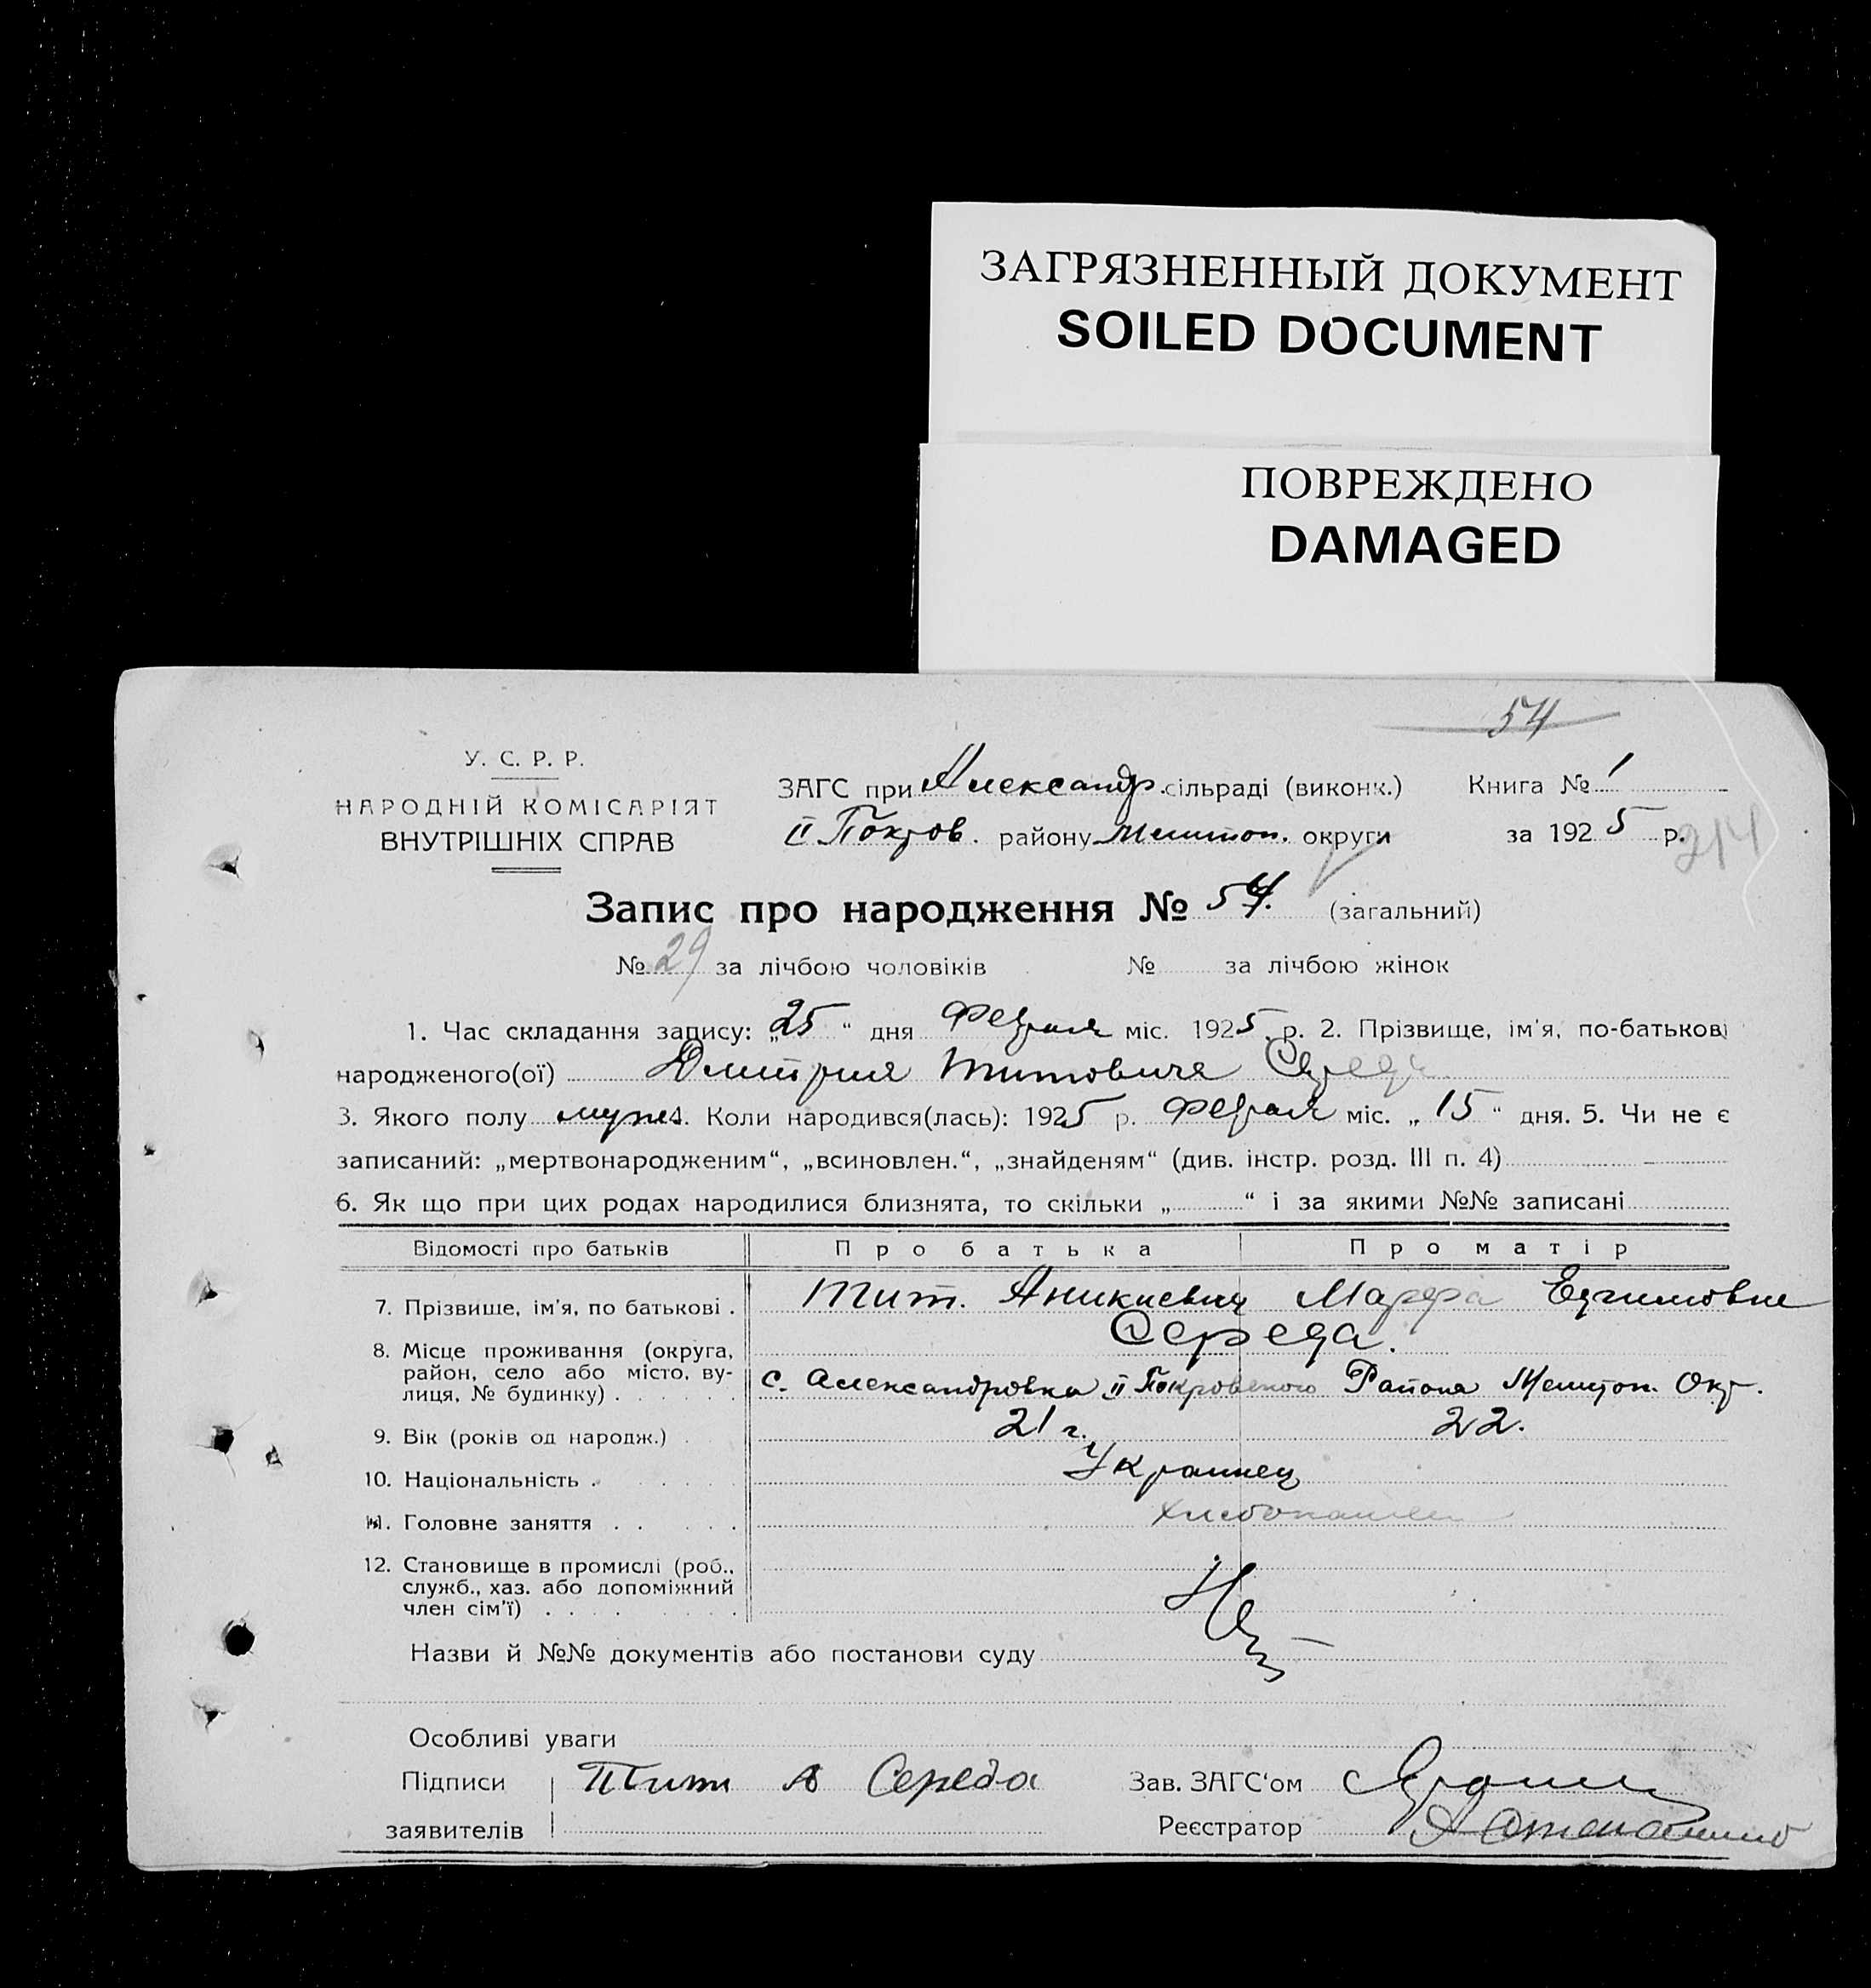 ЗАГРЯЗНЕННЫЙ ДОКУМЕНТ
SOILED DOCUMENT
ПОВРЕЖДЕНО
DAMAGED
54
У. С. Р. Р.
НАРОДНІЙ КОМІСАРІЯТ
ВНУТРІШНІХ СПРАВ
ЗАГС при Александр. сільраді (виконк.) Книга № 1
II Покров. району Мелитоп. округи за 1925 р.
214
Запис про народження № 54. (загальний)
№ 29 за лічбою чоловіків № за лічбою жінок
1. Час складання запису: „25“ дня Февраля міс. 1925 р. 2. Прізвище, ім'я, по-батькові
народженого(ої) Дмитрия Титовича Середа
3. Якого полу муж 4. Коли народився(лась): 1925 р. Февраля міс. „15“ дня. 5. Чи не є
записаний: „мертвонародженим“, „всиновлен.“, „знайденям“ (див. інстр. розд. III п. 4)
6. Як що при цих родах народилися близнята, то скільки „ “ і за якими №№ записані
Відомості про батьків Про батька Про матір
7. Прізвише, ім'я, по батькові . Тит. Аникиевич Марфа Ефимовна
Середа.
8. Місце проживання (округа,
район, село або місто, ву-
лиця, № будинку) . с. Александровка II Покровского Района Мелитоп. Окр.
9. Вік (років од народж.) . 21 г. 22.
10. Національність . Украинец
11. Головне заняття . . Хлебопашец
12. Становище в промислі (роб.,
служб., хаз. або допоміжний
член сім'ї) . . . .
Назви й №№ документів або постанови суду Нет
Особливі уваги
Підписи Тит А Середа Зав. ЗАГС‘ом
заявителів Реєстратор